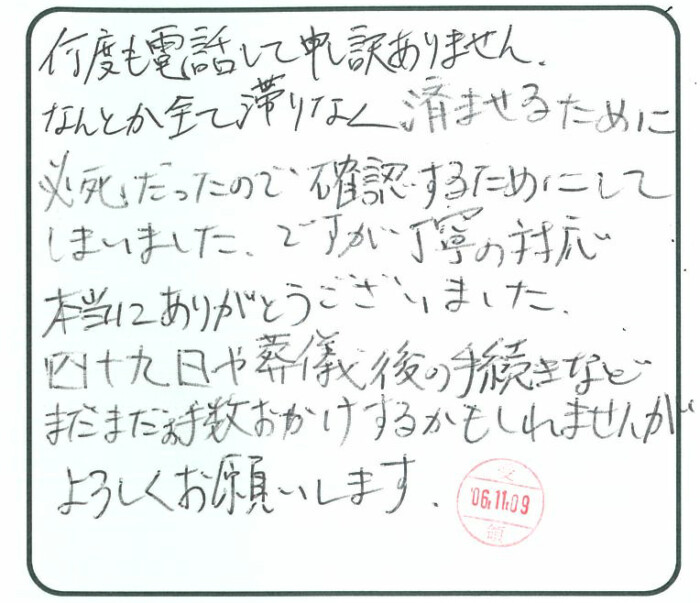 何度も電話して申し訳ありません.
なんとか全て滞りなく済ませるために
必死だったので確認するためにして
しまいました.ですが丁寧の対応
本当にありがとうございました.
四十九日や葬儀後の手続きなど
まだまだお手数おかけするかもしれませんが
よろしくお願いします.
'06.11.09
領